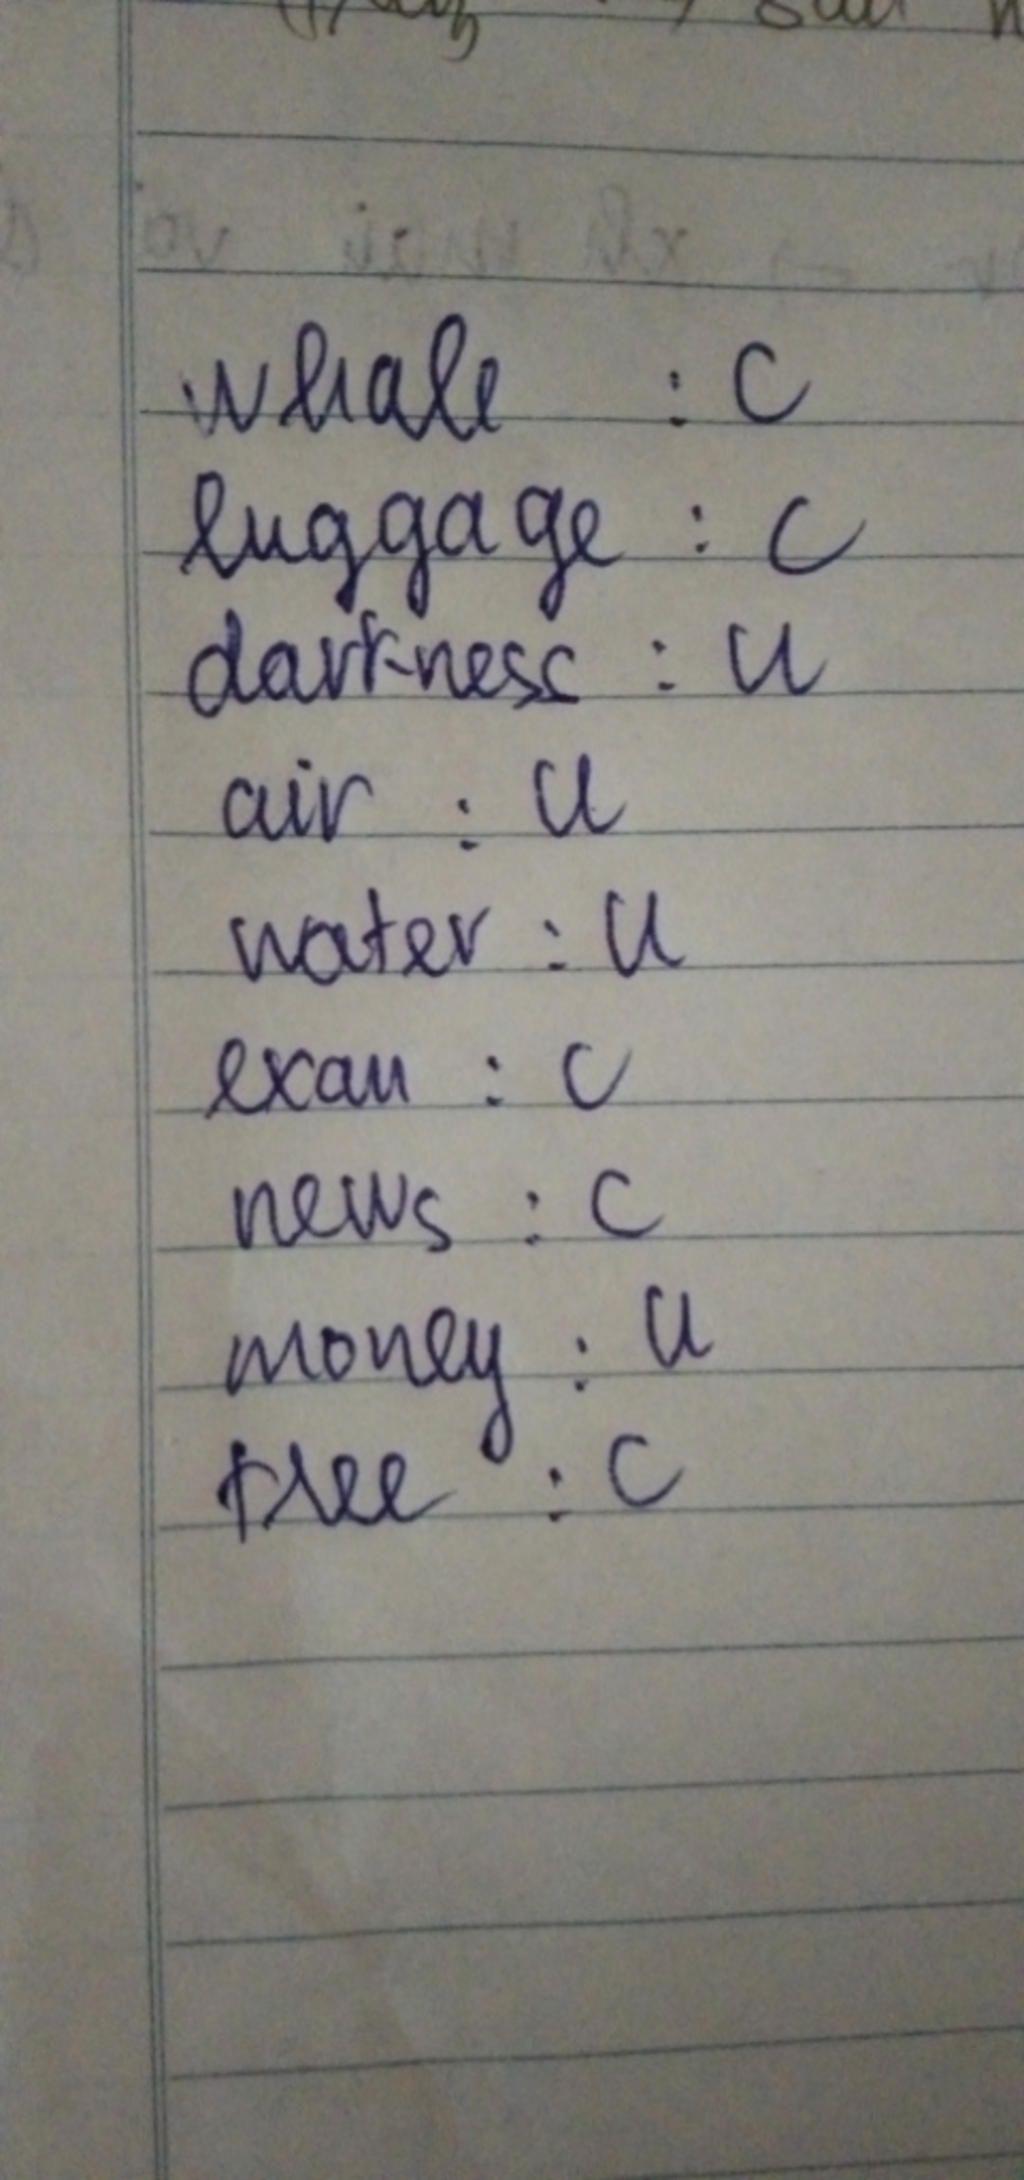 whale : C
luggage : C
darkness : U
air : U
water : U
exam : C
news : C
money : U
tree : C